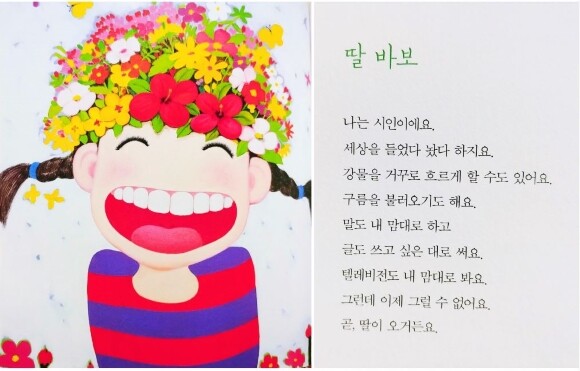 딸 바보
나는 시인이에요.
세상을 들었다 놨다 하지요.
강물을 거꾸로 흐르게 할 수도 있어요.
구름을 불러오기도 해요.
말도 내 맘대로 하고
글도 쓰고 싶은 대로 써요.
텔레비전도 내 맘대로 봐요.
그런데 이제 그럴 수 없어요.
곧, 딸이 오거든요.